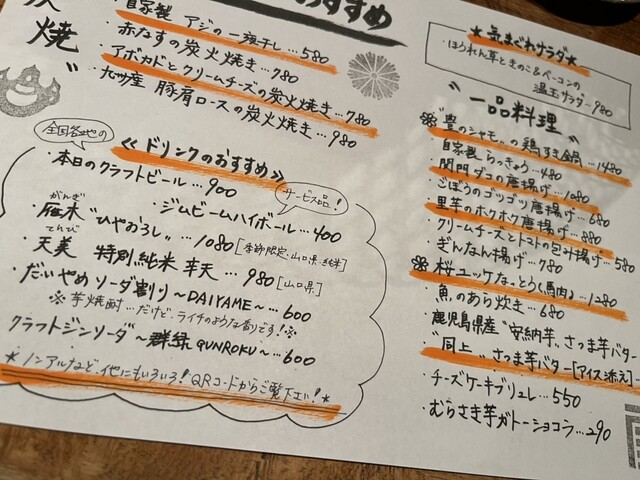 おすすめ
炭焼〃
・自家製 アジの一夜干し…580
・赤なすの炭火焼き…780
・アボカドとクリームチーズの炭火焼き…780
・九州産 豚肩ロースの炭火焼き…980
全国各地の
≪ドリンクのおすすめ≫
・本日のクラフトビール…900
サービス品！
・ジムビームハイボール…400
がんぎ
・雁木 〝ひやおろし〟…1080［季節限定・山口県・純米］
てんび
・天美 特別純米 辛天…980［山口県］
・だいやめソーダ割り〜DAIYAME〜…600
※芋焼酎…だけど、ライチのような香りです！※
クラフトジンソーダ〜群緑 GUNROKU〜…600
★ノンアルなど、他にもいろいろ！QRコードからご覧下さい！★
★気まぐれサラダ★
・ほうれん草ときのこ＆ベーコンの
温玉サラダ…980
〝一品料理〟
豊のシャモの鶏すき鍋…1480
・自家製らっきょう…480
・関門ダコの唐揚げ…1080
・ごぼうのゴツゴツ唐揚げ…680
・里芋のホクホク唐揚げ…880
・クリームチーズとトマトの包み揚げ…580
・ぎんなん揚げ…780
桜ユッケなっとう(馬肉)…1280
・魚のあら炊き…680
・鹿児島県産〝安納芋〟さつま芋バター
・〝同上〟さつま芋バター［アイス添え］
・チーズケーキブリュレ…550
・むらさき芋ガトーショコラ…290